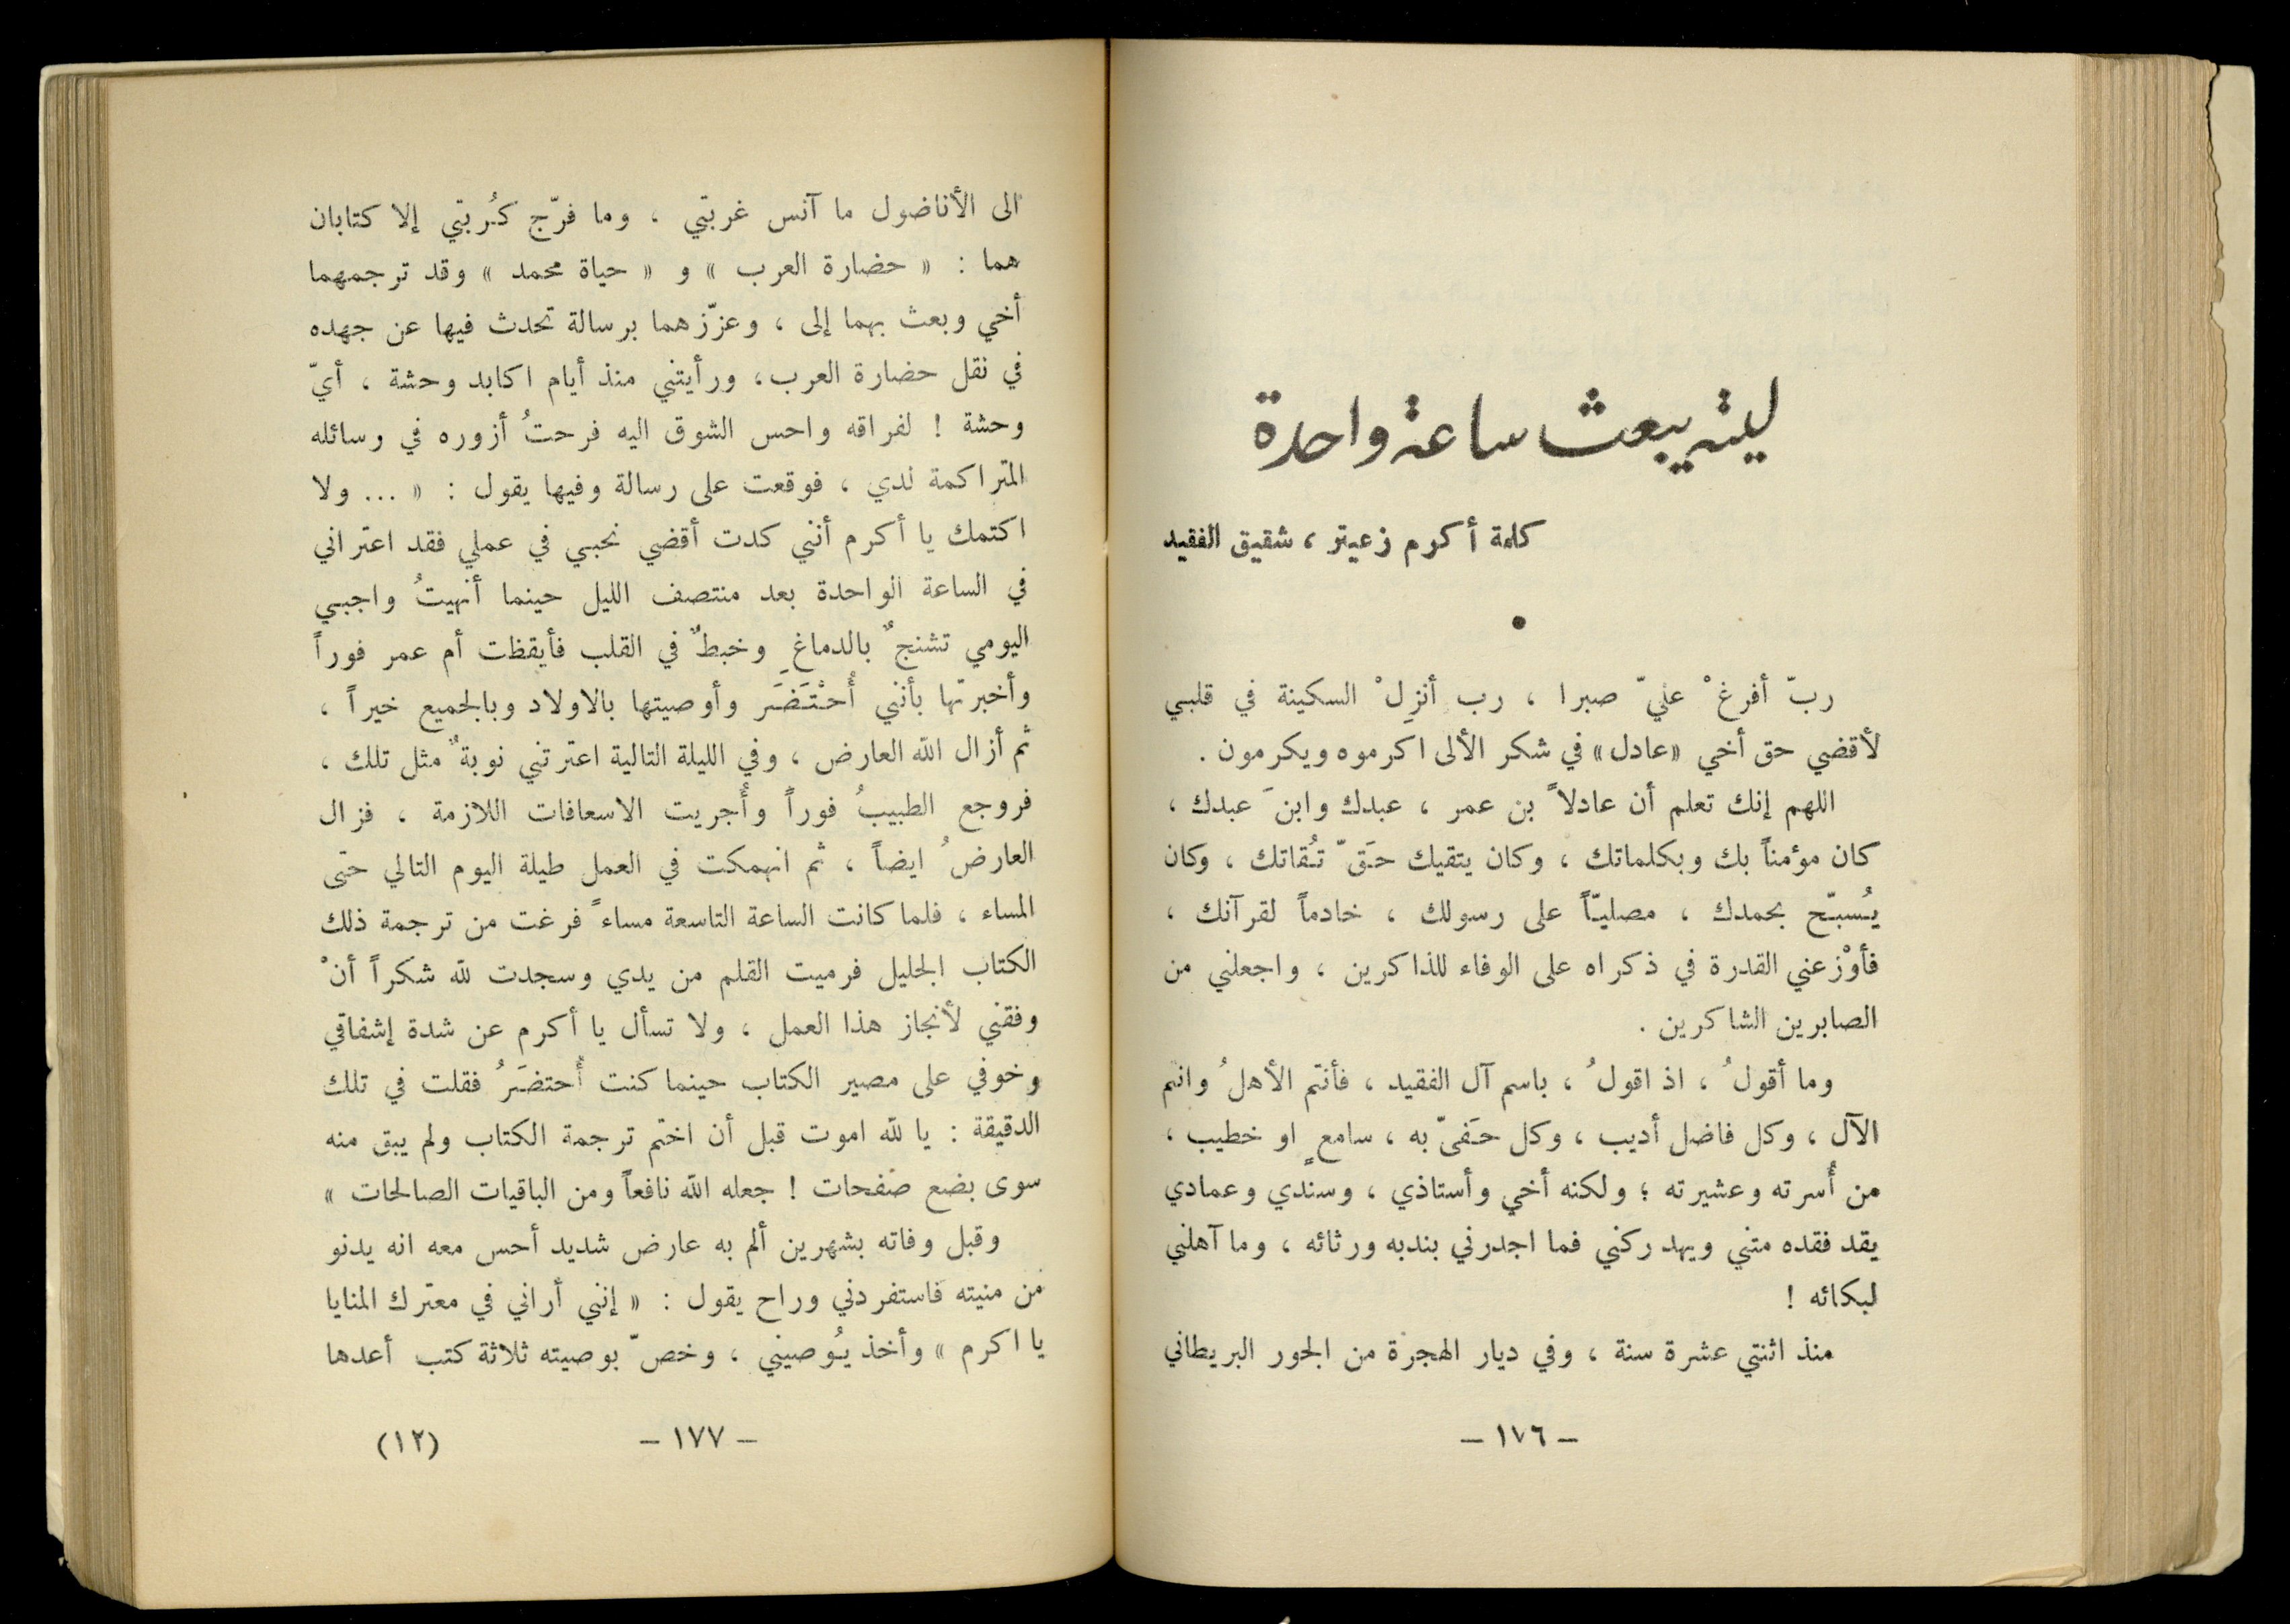 ليته يبعث ساعة واحدة
كلمة أكرم زعيتر ، شقيق الفقيد
ربّ أفرغْ عليّ صبرا ، رب أنزِلْ السكينة في قلبي
لأقضي حق أخي «عادل» في شكر الألى اكرموه ويكرمون .
اللهم إنك تعلم أن عادلاً بن عمر ، عبدك وابنَ عبدك ،
كان مؤمناً بك وبكلماتك ، وكان يتقيك حَقّ تُقاتك ، وكان
يُسبّح بحمدك ، مصليّاً على رسولك ، خادماً لقرآنك ،
فأوْزعني القدرة في ذكراه على الوفاء للذاكرين ، واجعلني من
الصابرين الشاكرين .
وما أقولُ ، اذ اقولُ ، باسم آل الفقيد ، فأنتم الأهلُ وانتم
الآل ، وكل فاضل أديب ، وكل حَفىّ به ، سامعٍ او خطيب ،
من أُسرته وعشيرته ؛ ولكنه أخي وأستاذي ، وسندي وعمادي
يقد فقده متني ويهد ركني فما اجدرني بندبه ورثائه ، وما آهلني
لبكائه !
منذ اثنتي عشرة سنة ، وفي ديار الهجرة من الجور البريطاني
– ١٧٦ –
الى الأناضول ما آنس غربتي ، وما فرّج كُربتي إلا كتابان
هما : « حضارة العرب » و « حياة محمد » وقد ترجمهما
أخي وبعث بهما إلى ، وعزّزهما برسالة تحدث فيها عن جهده
في نقل حضارة العرب، ورأيتني منذ أيام اكابد وحشة ، أيّ
وحشة ! لفراقه واحس الشوق اليه فرحتُ أزوره في رسائله
المتراكمة لدي ، فوقعت على رسالة وفيها يقول : « ... ولا
اكتمك يا أكرم أنني كدت أقضي نحبي في عملي فقد اعتراني
في الساعة الواحدة بعد منتصف الليل حينما أنهيتُ واجبي
اليومي تشنجٌ بالدماغِ وخبطٌ في القلب فأيقظت أم عمر فوراً
وأخبرتها بأنني أُحْتَضَر وأوصيتها بالاولاد وبالجميع خيراً ،
ثم أزال الله العارض ، وفي الليلة التالية اعترتني نوبةٌ مثل تلك ،
فروجع الطبيبُ فوراً وأُجريت الاسعافات اللازمة ، فزال
العارضُ ايضاً ، ثم انهمكت في العمل طيلة اليوم التالي حتى
المساء ، فلما كانت الساعة التاسعة مساءً فرغت من ترجمة ذلك
الكتاب الجليل فرميت القلم من يدي وسجدت لله شكراً أنْ
وفقني لأنجاز هذا العمل ، ولا تسأل يا أكرم عن شدة إشفاقي
وخوفي على مصير الكتاب حينما كنت أُحتضَرُ فقلت في تلك
الدقيقة : يا لله اموت قبل أن اختم ترجمة الكتاب ولم يبق منه
سوى بضع صفحات ! جعله الله نافعاً ومن الباقيات الصالحات »
وقبل وفاته بشهرين ألم به عارض شديد أحس معه انه يدنو
من منيته فاستفردني وراح يقول : « إنني أراني في معترك المنايا
يا اكرم » وأخذ يُوصيني ، وخصّ بوصيته ثلاثة كتب أعدها
– ١٧٧ –
(١٢)